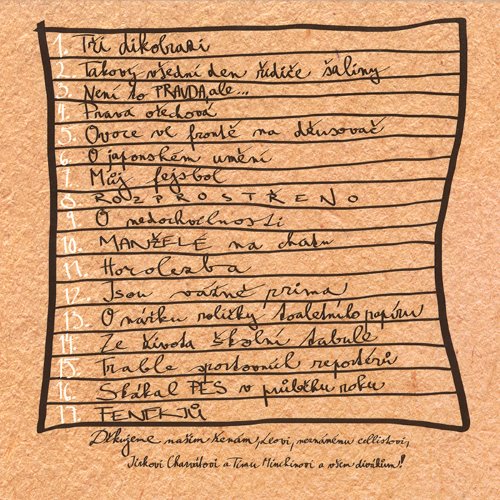 1. Tři dikobrazi
2. Takový všední den řidiče šaliny
3. Není to PRAVDA, ale...
4. Pravá ořechová
5. Ovoce ve frontě na džusovač
6. O japonském umění
7. Můj fejsbol
8. ROZPROSTŘENO
9. O nedochvilnosti
10. MANŽELÉ na chatu
11. Horolezba
12. Jsou vážně príma
13. O nářku roličky toaletního papíru
14. Ze života školní tabule
15. Trable sportovních reportérů
16. Skákal PES v průběhu roku
17. FENEKJŮ
Děkujeme našim ženám, Leovi, neznámému cellistovi,
Jirkovi Charvátovi a Timu Minchinovi a všem divákům!!